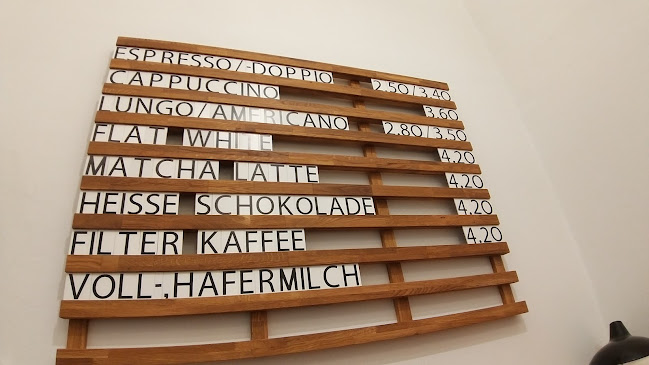 ESPRESSO/-DOPPIO 2,50/3,40
CAPPUCCINO 3,60
LUNGO/AMERICANO 2,80/3,50
FLAT WHITE 4,20
MATCHA LATTE 4,20
HEISSE SCHOKOLADE 4,20
FILTER KAFFEE 4,20
VOLL-,HAFERMILCH